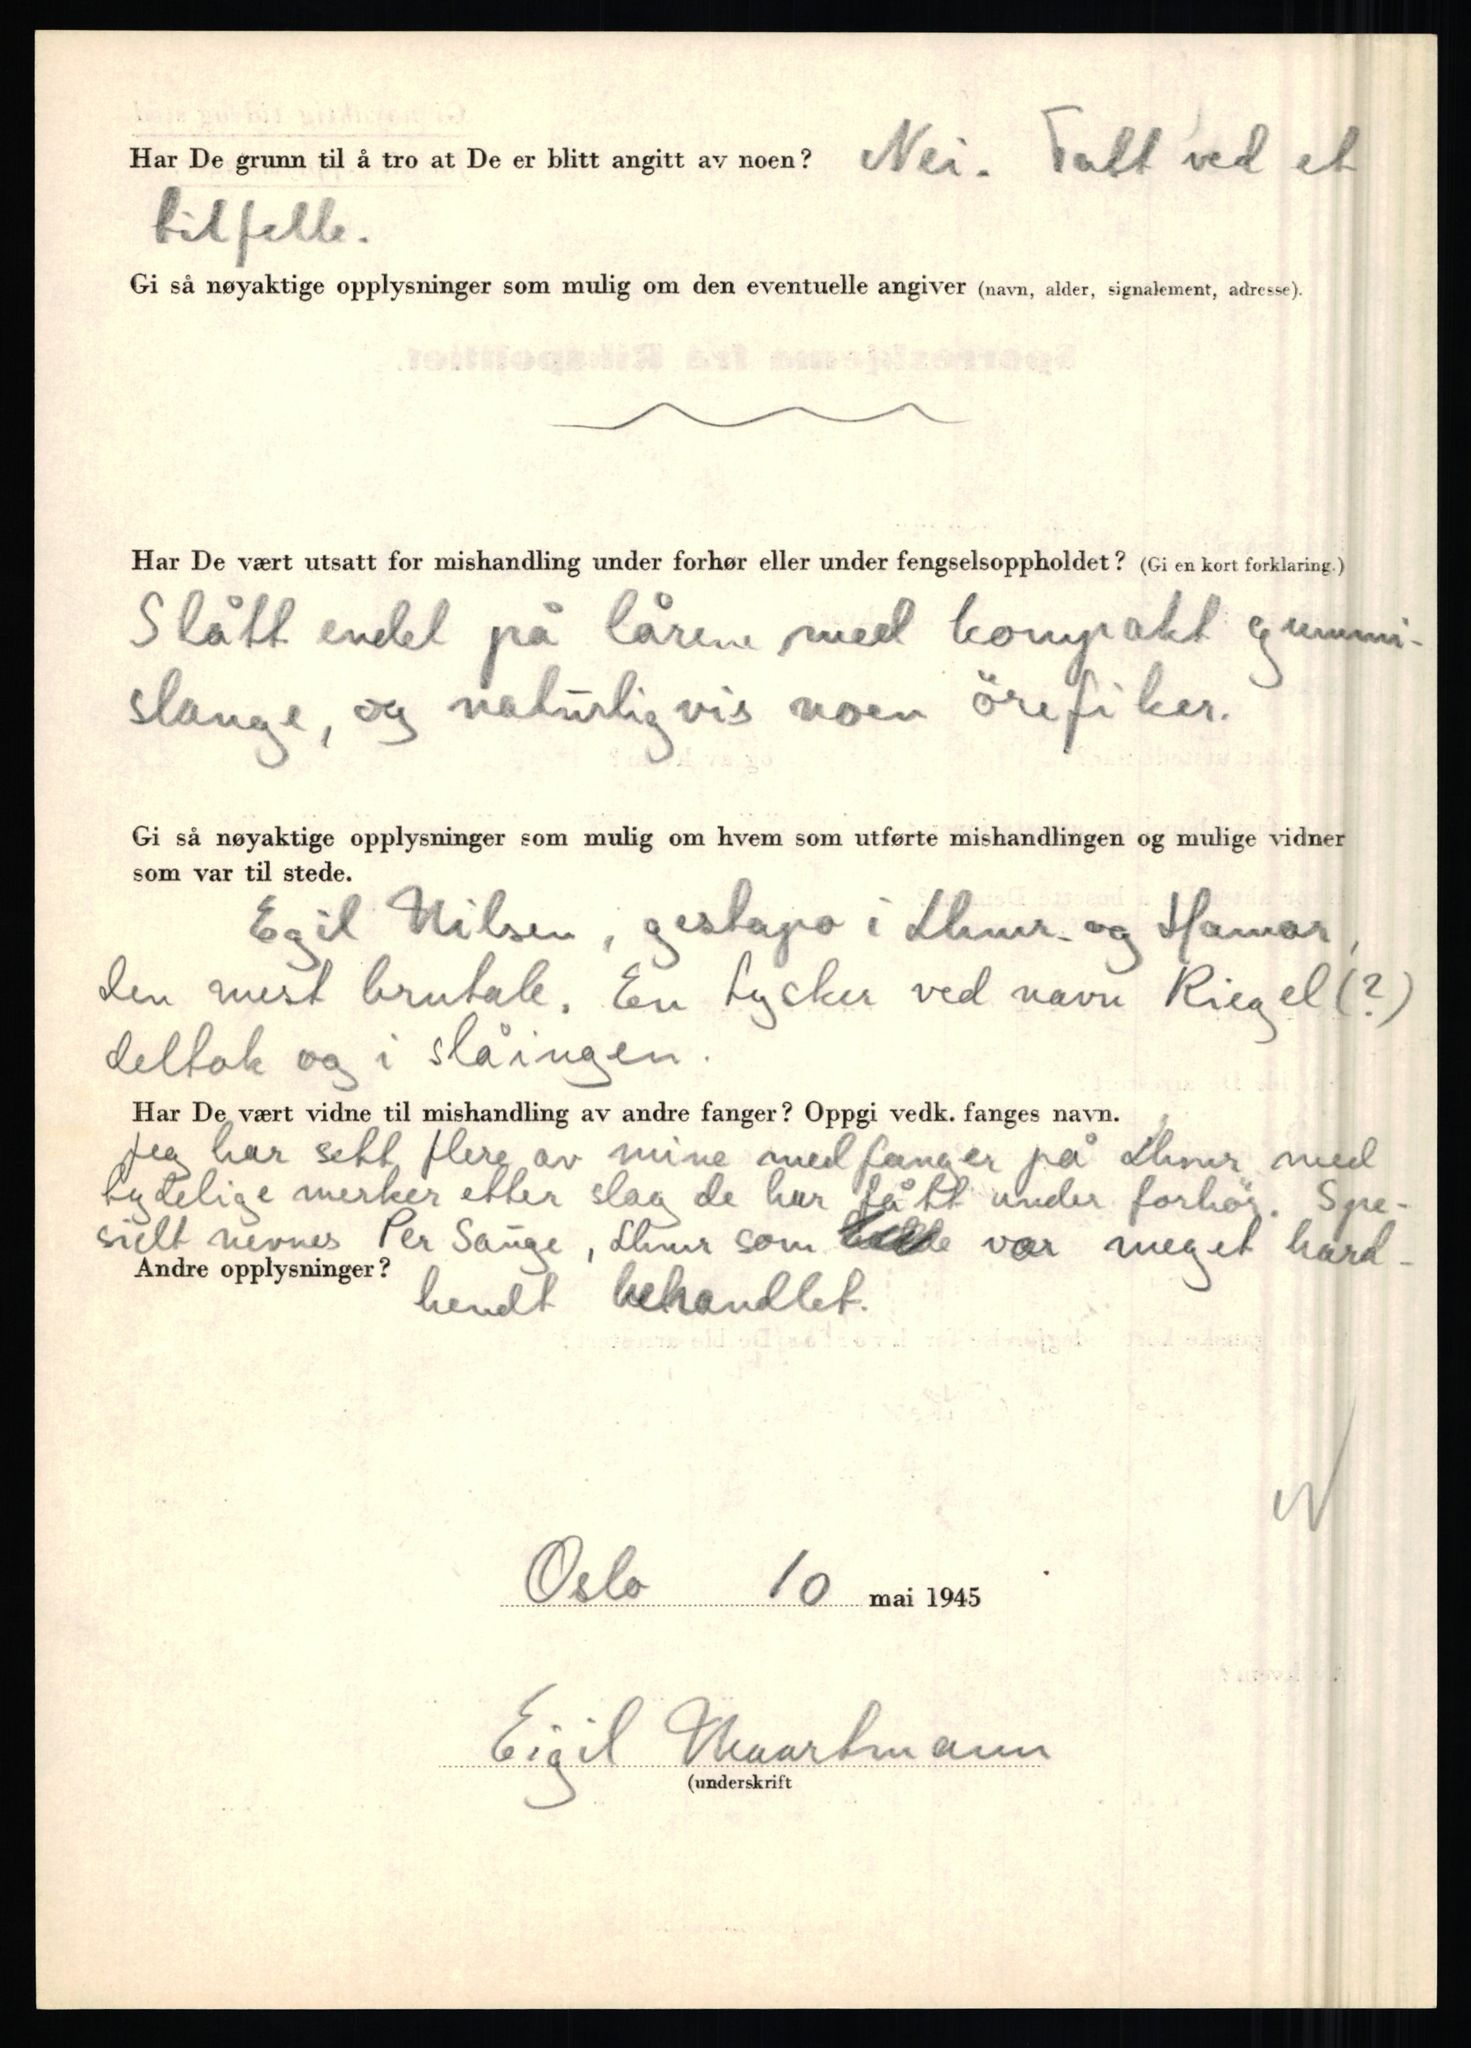 Har De grunn til å tro at De er blitt angitt av noen? Nei. Tatt ved et
tilfelle.
Gi så nøyaktige opplysninger som mulig om den eventuelle angiver (navn, alder, signalement, adresse).
Har De vært utsatt for mishandling under forhør eller under fengselsoppholdet? (Gi en kort forklaring.)
Slått endel på lårene med kompakt gummi-
slange, og naturligvis noen örefiker.
Gi så nøyaktige opplysninger som mulig om hvem som utførte mishandlingen og mulige vidner
som var til stede.
Egil Nilsen, gestapo i Lhmr. og Hamar,
den mest brutale. En tysker ved navn Riegel (?)
deltok og i slåingen.
Har De vært vidne til mishandling av andre fanger? Oppgi vedk. fanges navn.
Jeg har sett flere av mine medfanger på Lhmr med
tydelige merker etter slag de har fått under forhör. Spe-
sielt nevnes Per Sauge, Lhmr som var meget hard-
Andre opplysninger?
hendt behandlet.
Oslo 10 mai 1945
Eigil Maartmann
(underskrift